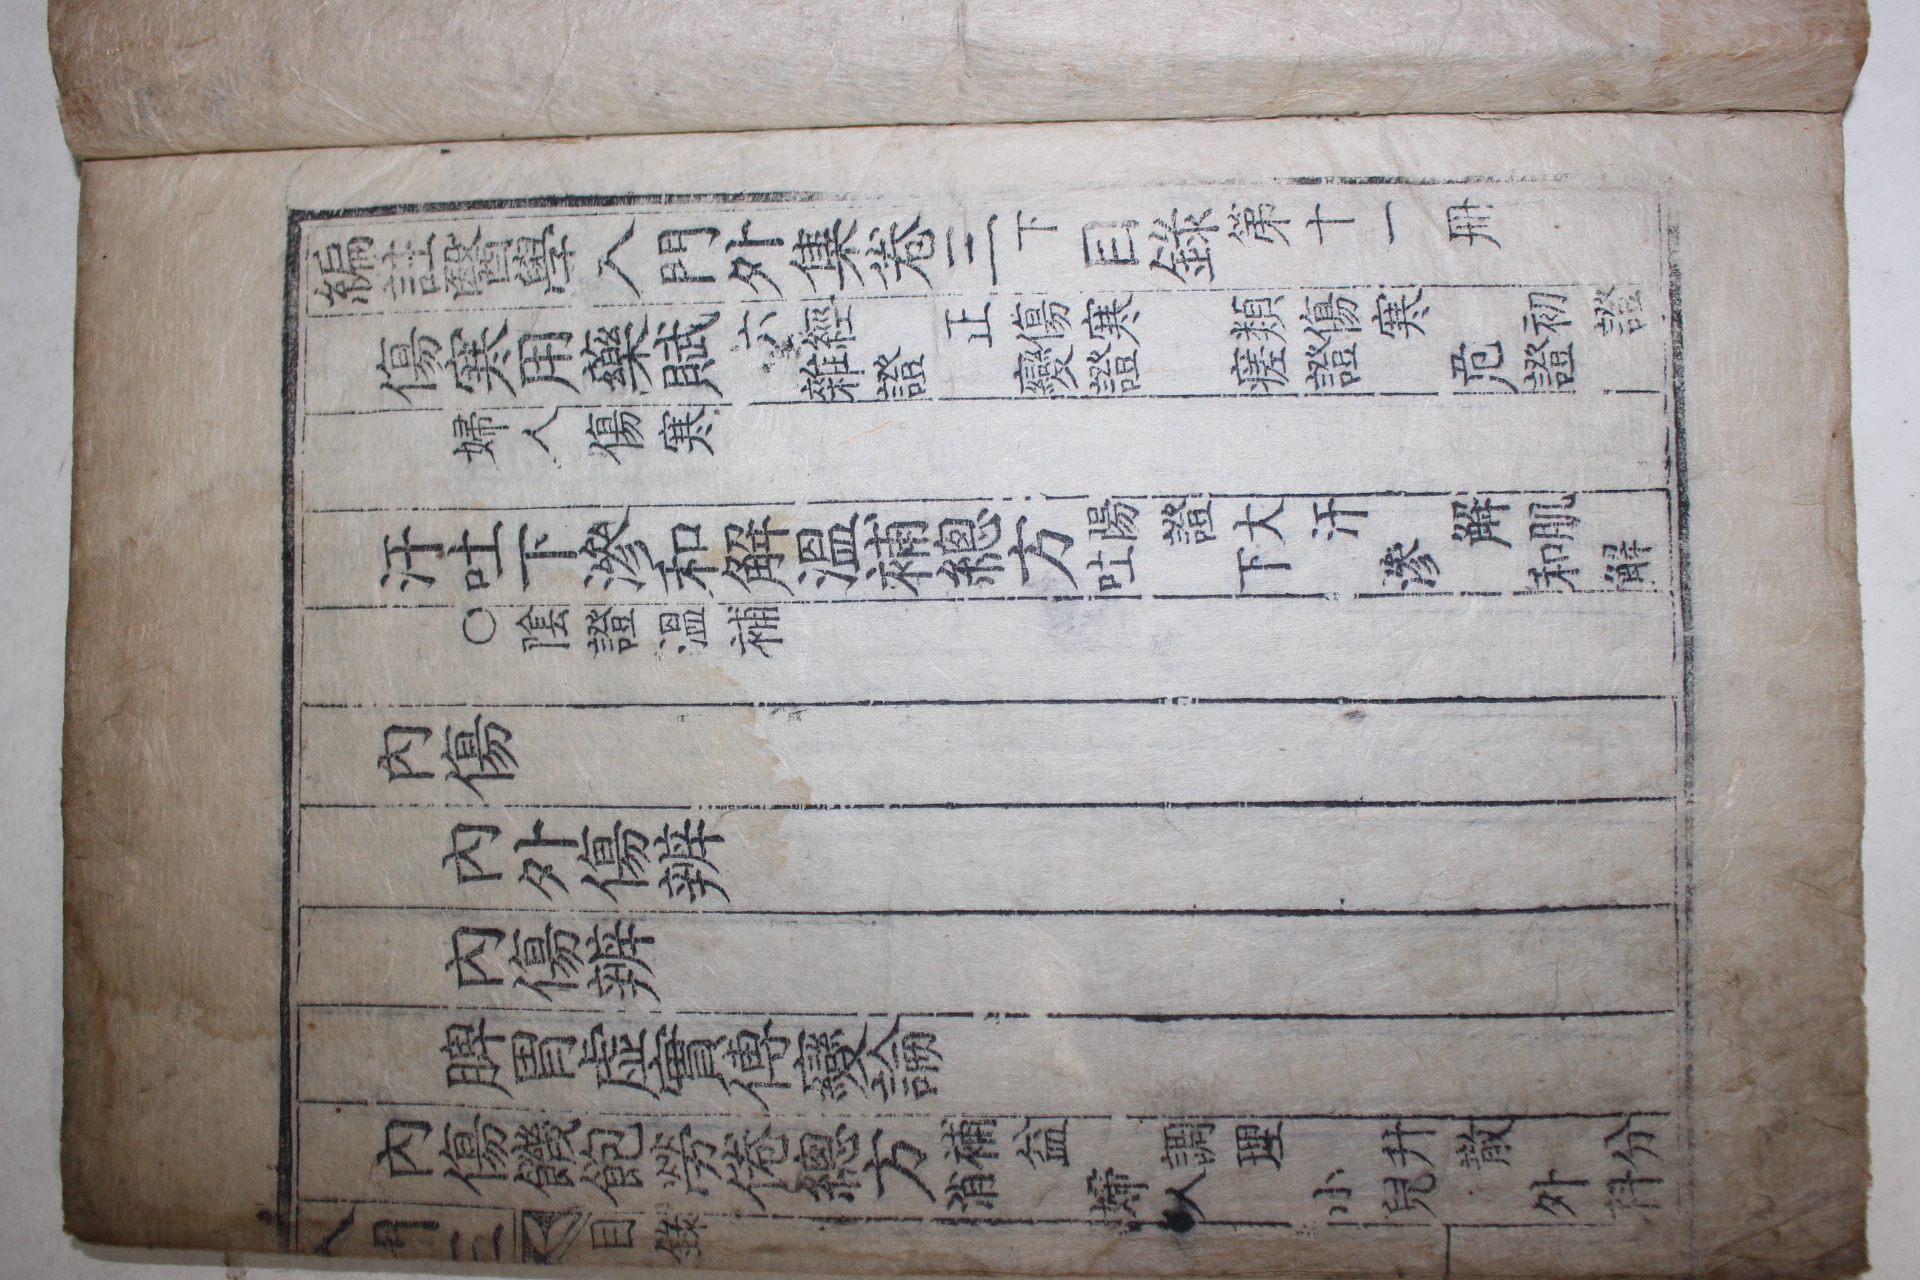 編註醫學入門外集卷三下目錄第十一冊
傷寒用藥賦六經正傷寒類傷寒初證
雜證變證瘥證危證
婦人傷寒
汗吐下滲和解溫補總方陽證大汗解肌
吐下滲和解
○陰證溫補
內傷
內外傷辨
內傷辨
脾胃虛實傳變論
內傷饑飽勞倦總方補益調理升散分
消婦人小兒外科
入門三 目錄